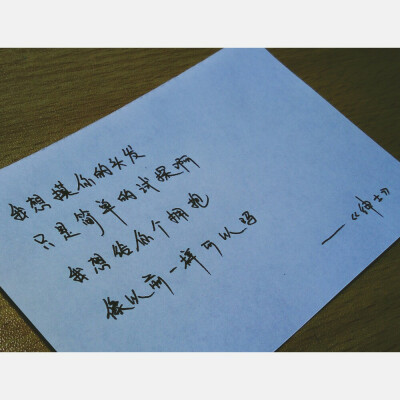 我想摸你的头发
只是简单的试探啊
我想给你个拥抱
像以前一样可以吗
——《绅士》